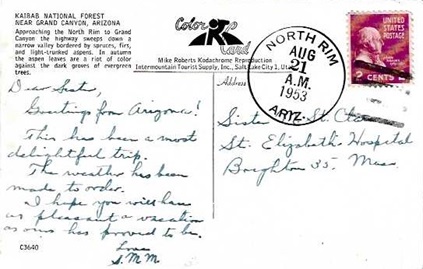 KAIBAB NATIONAL FOREST
NEAR GRAND CANYON, ARIZONA
Approaching the North Rim to Grand
Canyon the highway sweeps down a
narrow valley bordered by spruces, firs,
and light-trunked aspens. In autumn
the aspen leaves are a riot of color
against the dark groves of evergreen
trees.
Color
Card
Mike Roberts Kodachrome Reproduction
Intermountain Tourist Supply, Inc., Salt Lake City 1, Utah
NORTH RIM
AUG
21
A.M.
1953
ARIZ.
UNITED STATES
POSTAGE
2 CENTS 2
Address
Dear Sister,
Greeting from Arizona!
This has been a most
delightful trip.
The weather has been
made to order.
I hope you will have
as pleasant a vacation
as ours has proved to be.
Love
S.M.M.
Sister St. Clare
St. Elizabeth's Hospital
Brighton 35, Mass.
C3640